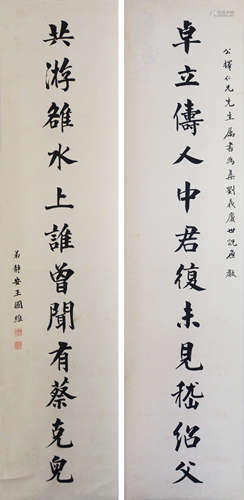 公鐸仁兄先生屬書為集劉義慶世說 教
卓立儔人中君復未見嵇紹父
共游雒水上誰曾聞有蔡克兒
弟靜安王國維